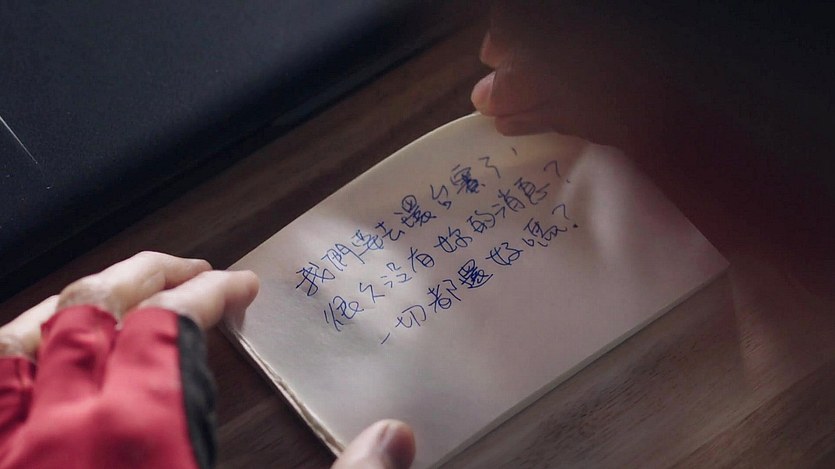 我們要去環台賽了,
很久沒有妳的消息?
一切都還好嗎?